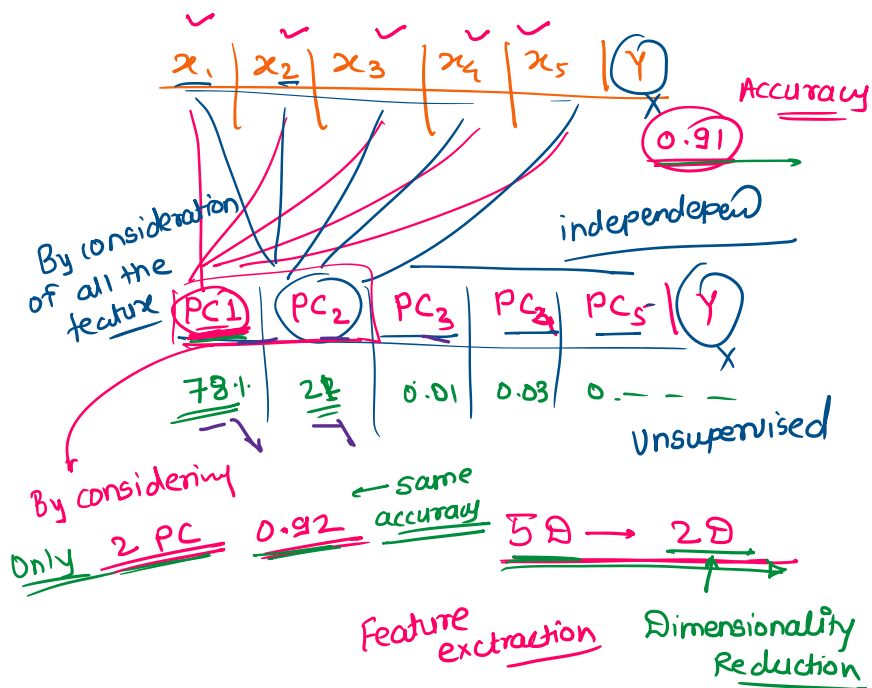 x1 x2 x3 x4 x5 Y
Accuracy
x
0.91
independepen
By consideration
of all the
feature
PC1 PC2 PC3 PC4 PC5 Y
x
78% 0.01 0.03 0. - - - -
Unsupervised
By considering
Only 2 PC 0.92 ← same
accuracy
5D → 2D
Feature
exctraction
Dimensionality
Reduction